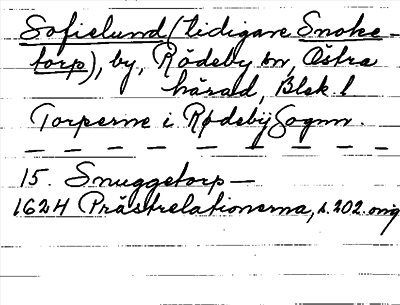 Sofielund (tidigare Snoke-
torp), by, Rödeby sn, Östra
härad, Blek. l
Torperne i Rødebÿ Sognn.
15. Snuggetorp —
1624 Prästrelationerna, s. 202. orig